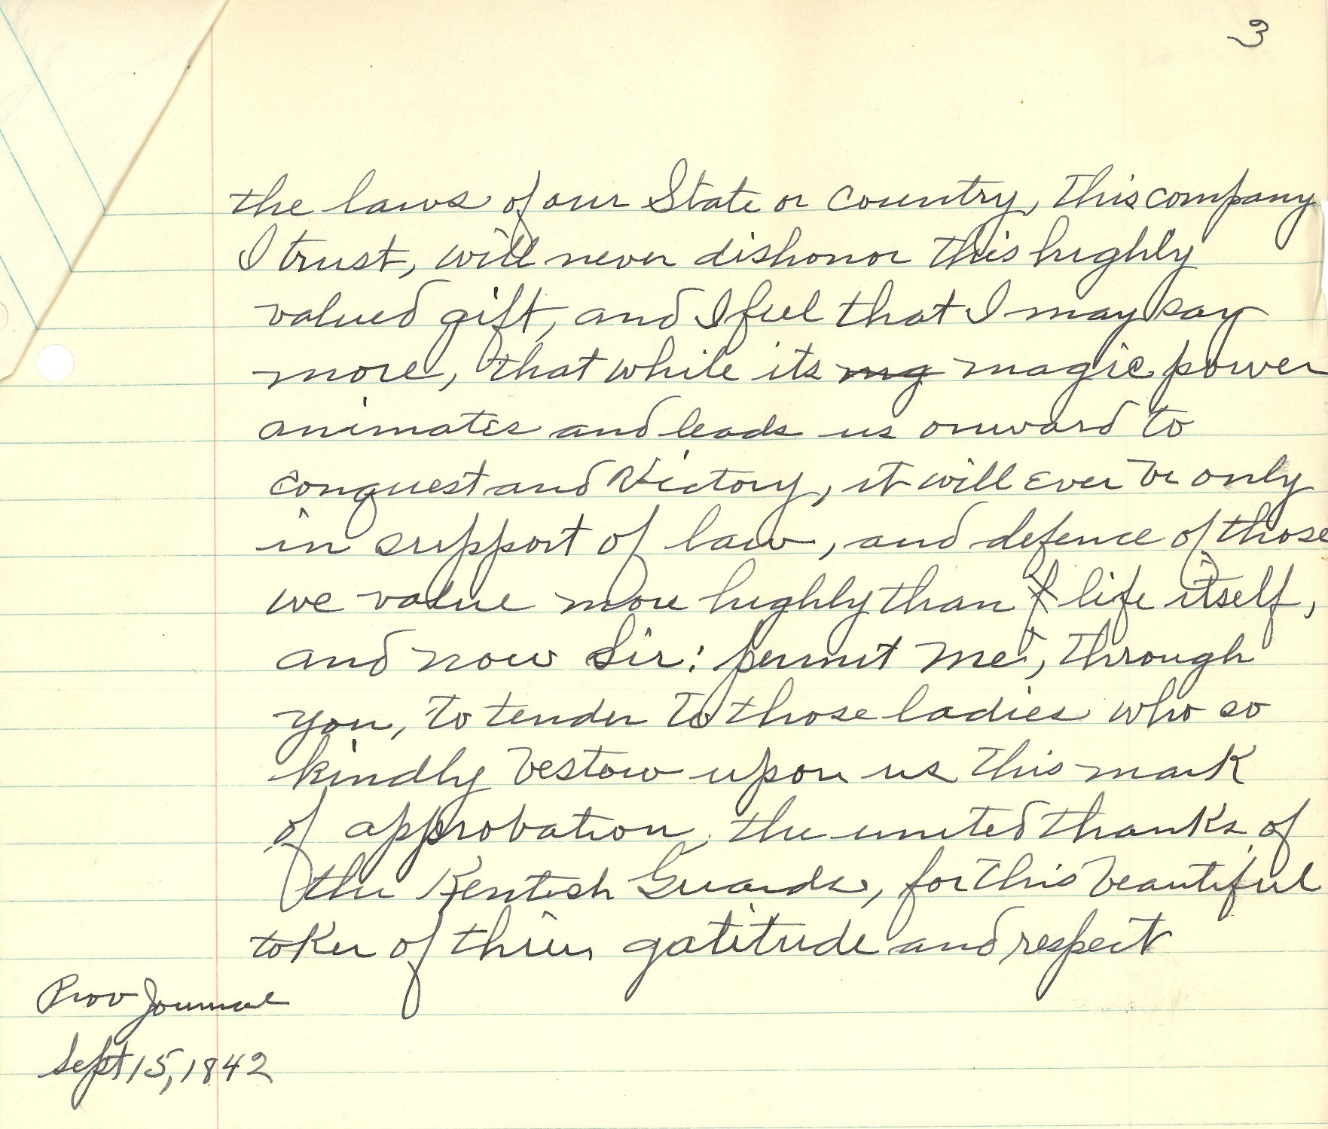 3
the laws of our State or Country, this company
I trust, will never dishonor this highly
valued gift, and I feel that I may say
more, that while its mg magic power
animates and leads us onward to
conquest and Victory, it will ever be only
in support of law, and defence of those
we value more highly than f life itself,
and now Sir: permit me, through
you, to tender to those ladies who so
kindly bestow upon us this mark
of approbation, the united thanks of
the Kentish Guards, for this beautiful
token of thier gatitude and respect
Prov Journal
Sept 15, 1842